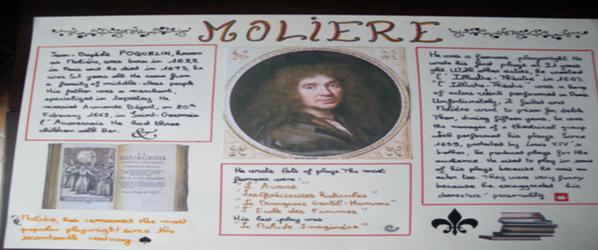 MOLIERE
Jean-Baptiste POQUELIN, known
as Molière, was born in 1622
and he died in 1673, he
was 51 years old. He came from
a family of middle-class people.
His father was a merchant,
specialized in tapestry. He
married Armande Béjart, on 20th
February 1662, in Saint-Germain
l'Auxerrois. He had three
children with her.
He was a famous playwright. He
wrote his first plays at 21 years
old. With other actors, he created
"L'Illustre Théâtre" in 1643.
"L'Illustre Théâtre" was a
of actors which performed in Paris.
Unfortunately, it failed and
Molière went to prison for debts.
Then, during fifteen years, he was
of a theatrical group
and performed his plays. Since
1659, protected by Louis XIV,
he produced plays for the
audience. He used to play in some
of his plays because he was an
actor too. They were very funny
because he exaggerated his
characters' personality.
LE
BOURGEOIS
He wrote lots of plays. The most
famous were:
"L'Avare"
"Les Précieuses Ridicules"
"Le Bourgeois Gentil-Homme"
"L'Ecole des Femmes"
His last play was:
"Le Malade Imaginaire"
Molière has remained the most
popular playwright since the
seventeenth century.